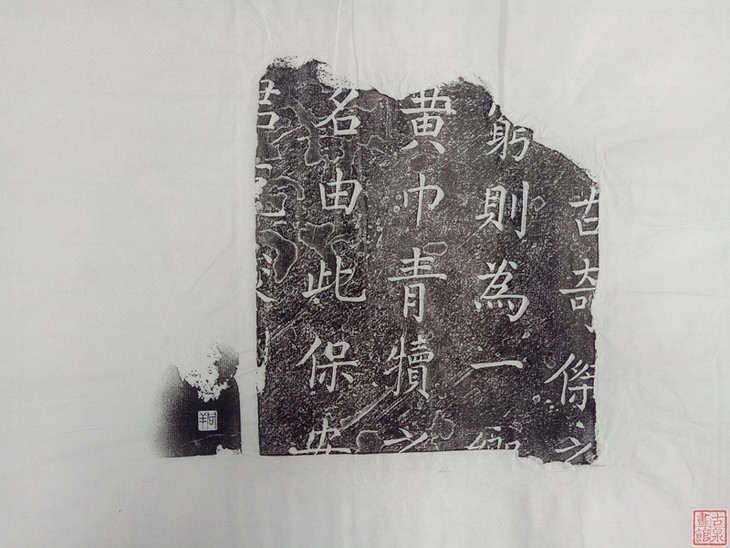 古奇傑之
窮則為一鄉
黃巾青犢之
名由此保安
君
古泉書館